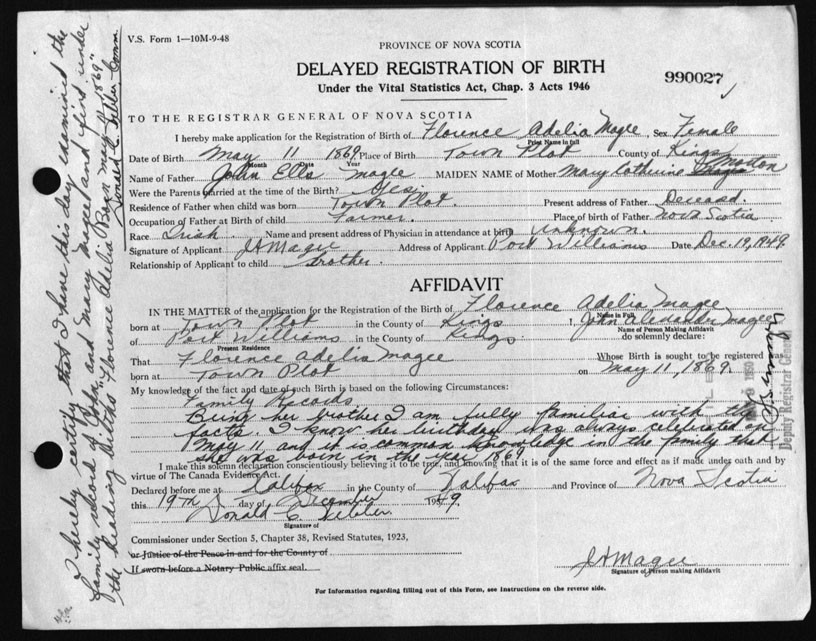 V.S. Form 1—10M-9-48
PROVINCE OF NOVA SCOTIA
DELAYED REGISTRATION OF BIRTH
990027
Under the Vital Statistics Act, Chap. 3 Acts 1946
TO THE REGISTRAR GENERAL OF NOVA SCOTIA
I hereby make application for the Registration of Birth of Florence Adelia Magee, Sex Female
Print Name in full
Date of Birth May 11 1869 Place of Birth Town Plot County of Kings
Month Date Year
Name of Father John Ells Magee MAIDEN NAME of Mother Mary Catherine Morton
Were the Parents married at the time of Birth? Yes
Residence of Father when child was born Town Plot. Present address of Father Deceased.
Occupation of Father at Birth of child Farmer. Place of birth of Father Nova Scotia
Race Irish Name and present address of Physician in attendance at birth Unknown.
Signature of Applicant JAMagee Address of Applicant Port Williams Date Dec. 19, 1949
Relationship of Applicant to child brother.
AFFIDAVIT
IN THE MATTER of the application for the Registration of the Birth of Florence Adelia Magee
Name in Full
born at Town Plot in the County of Kings I, John Alexander Magee
Name of Person Making Affidavit
of Port Williams in the County of Kings do solemnly declare:
Present Residence
That Florence Adelia Magee Whose Birth is sought to be registered was
born at Town Plot on May 11, 1869.
My knowledge of the fact and date of such Birth is based on the following Circumstances:
Family Records.
Being her brother I am fully familiar with the
facts. I know her birthday was always celebrated on
May 11, and it is common knowledge in the family that
she was born in the year 1869
I make this solemn declaration conscientiously believing it to be true, and knowing that it is of the same force and effect as if made under oath and by
virtue of The Canada Evidence Act.
Declared before me at Halifax in the County of Halifax and Province of Nova Scotia
this 19th day of December 1949
Donald C.
Signature of
Commissioner under Section 5, Chapter 38, Revised Statutes, 1923,
or Justice of the Peace in and for the County of
If sworn before a Notary Public affix seal.
JAMagee
Signature of Person making Affidavit
For Information regarding filling out of this Form, see Instructions on the reverse side.
I hereby certify that I have this day examined the
family record of John and Mary Magee and find under
the heading Births "Florence Adelia Born May 11 1869"
Donald C. Comm
Deputy Registrar General
1950